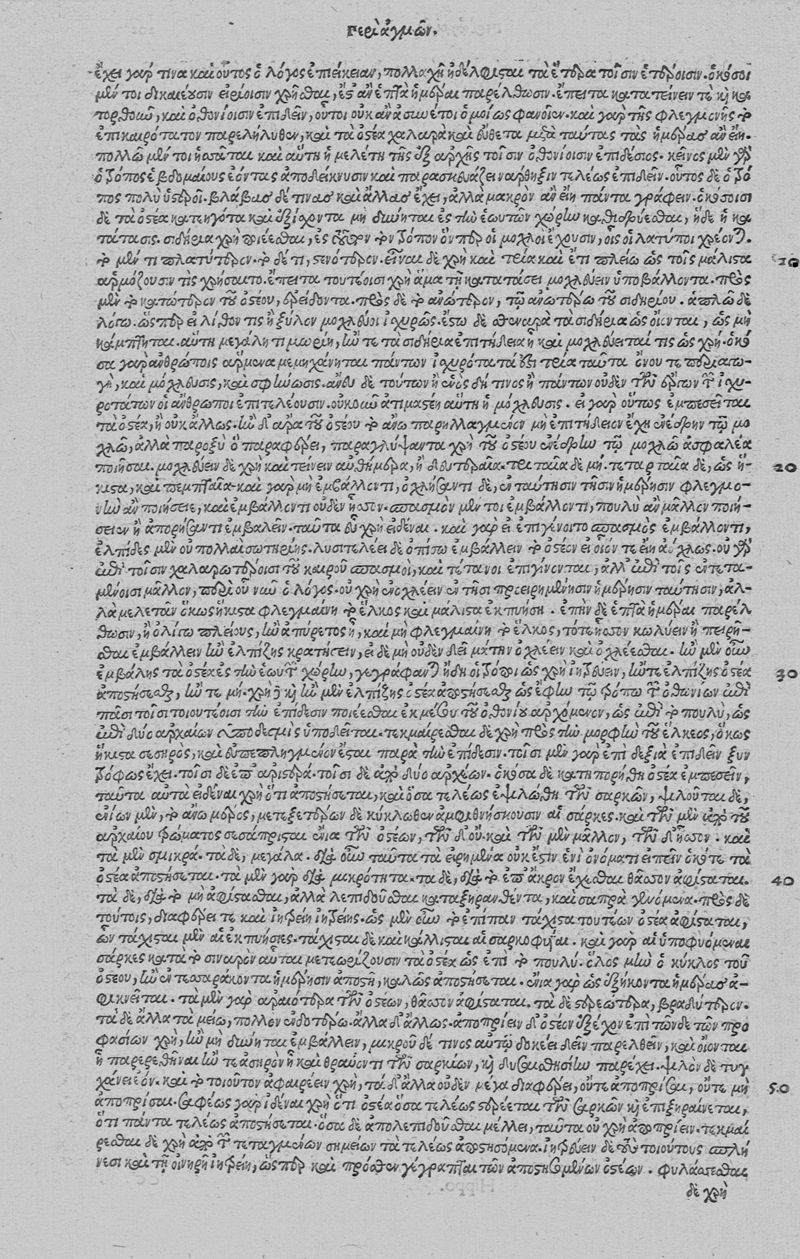 Περὶ ἀγμῶν.
ἔχει γάρ τινα καὶ οὗτος ὁ λόγος ἐπιείκειαν, πολλαχῆ ἠδέλφισται τὰ ἕτερα τοῖσιν ἑτέροισιν. ὁκόσοι
μέν τοι δικαιεῦσιν εἰρίοισιν χρῆσθαι, ἐς ἂν ἑπτὰ ἡμέραι παρέλθωσιν. ἔπειτα κατατείνειν τε καὶ κα
τορθοῦν, καὶ ὀθονίοισιν ἐπιδεῖν, οὗτοι οὐκ ἂν ἀσύνετοι ὁμοίως φανοῖεν. καὶ γὰρ τῆς φλεγμονῆς τὸ
ἐπικαιρότατον παρελήλυθεν, καὶ τὰ ὀστέα χαλαρὰ καὶ εὔθετα μετὰ ταύτας τὰς ἡμέρας ἂν εἴη.
πολλῷ μέν τοι ἡσσᾶται καὶ αὕτη ἡ μελέτη τῆς ἐξ ἀρχῆς τοῖσιν ὀθονίοισιν ἐπιδέσιος. κεῖνος μὲν γὰρ
ὁ τρόπος ἑβδομαίους ἐόντας ἀποδείκνυσιν καὶ παρασκευάζει νάρθηξιν τελέως ἐπιδεῖν. οὗτος δὲ ὁ τρό
πος πολὺ ὑστερεῖ. βλάβας δέ τινας καὶ ἄλλας ἔχει, ἀλλὰ μακρὸν ἂν εἴη πάντα γράφειν. ὁκόσοισι
δὲ τὰ ὀστέα κατεηγότα καὶ ἐξίσχοντα μὴ δύνηται ἐς τὴν ἑωυτῶν χώρην καθιδρύεσθαι, ἥδε ἡ κα
τάτασις. σιδήρια χρὴ ποιέεσθαι, ἐς τοῦτον τὸν τρόπον ὅνπερ οἱ μοχλοὶ ἔχουσιν, οἷς οἱ λατύποι χρέονται.
τὸ μέν τι πλατύτερον. τὸ δέ τι, στενότερον. εἶναι δὲ χρὴ καὶ τρία καὶ ἔτι πλείω ὡς τοῖς μάλιστα
ἁρμόζουσίν τις χρήσαιτο. ἔπειτα τουτέοισι χρὴ ἅμα τῇ κατατάσει μοχλεύειν ὑποβάλλοντα. πρὸς
μὲν τὸ κατώτερον τοῦ ὀστέου, ἐρείδοντα. πρὸς δὲ τὸ ἀνώτερον, τῷ ἀνωτέρω τοῦ σιδηρίου. ἁπλῷ δὲ
λόγῳ. ὥσπερ εἰ λίθον τις ἢ ξύλον μοχλεύοι ἰσχυρῶς. ἔστω δὲ σθεναρὰ τὰ σιδήρια ὡς οἷόν τε, ὡς μὴ
κάμπτηται. αὕτη μεγάλη τιμωρίη, ἤν τε τὰ σιδήρια ἐπιτήδεια ᾖ καὶ μοχλεύηταί τις ὡς χρή. ὁκό
σα γὰρ ἀνθρώποις ἄρμενα μεμηχάνηται πάντων ἰσχυρότατά ἐστι τρία ταῦτα ὄνου τε περιαγω
γὴ, καὶ μόχλευσις, καὶ σφήνωσις. ἄνευ δὲ τούτων ἢ ἑνὸς δή τινος ἢ πάντων οὐδὲν τῶν ἔργων τῶν ἰσχυ
ροτάτων οἱ ἄνθρωποι ἐπιτελέουσιν. οὔκουν ἀτιμαστέη αὕτη ἡ μόχλευσις. εἰ γὰρ οὕτως ἐμπεσεῖται
τὰ ὀστέα, ἢ οὐκ ἄλλως. ἢν δ' ἄρα τοῦ ὀστέου τὸ ἄνω παρηλλαγμένον μὴ ἐπιτήδειον ἔχῃ ἐνέδρην τῷ μο
χλῷ, ἀλλὰ παροξὺ ὂ παραφέρει, παραγλύψαντα χρὴ τοῦ ὀστέου ἐνέδρην τῷ μοχλῷ ἀσφαλέα
ποιῆσαι. μοχλεύειν δὲ χρὴ καὶ τείνειν αὐθήμερα, ἢ δευτεραῖα. τριταῖα δὲ μή. τεταρταῖα δὲ, ὡς ἥ-
κιστα, καὶ πεμπταῖα. καὶ γὰρ μὴ ἐμβάλλοντι, ὀχλήσαντι δὲ, ἐν ταύτῃσιν τῇσιν ἡμέρῃσιν φλεγμο-
νὴν ἂν ποιήσειε, καὶ ἐμβάλλοντι οὐδὲν ἧσσον. σπασμὸν μέν τοι ἐμβάλλοντι, πουλὺ ἂν μᾶλλον ποιή-
σειεν ἢ ἀπορήσαντι ἐμβαλεῖν. ταῦτα εὖ χρὴ εἰδέναι. καὶ γὰρ εἰ ἐπιγένοιτο σπασμὸς ἐμβάλλοντι,
ἐλπίδες μὲν οὐ πολλαὶ σωτηρίης. λυσιτελέει δὲ ὀπίσω ἐμβάλλειν τὸ ὀστέον εἰ οἷόν τε εἴη ἀόχλως. οὐ γὰρ
ἐπὶ τοῖσιν χαλαρωτέροισι τοῦ καιροῦ σπασμοὶ, καὶ τέτανοι ἐπιγίνονται, ἀλλ' ἐπὶ τοῖς ἐντεταμ-
μένοισι μᾶλλον, περὶ οὗ νῦν ὁ λόγος. οὐ χρὴ ἐνοχλέειν ἐν τῇσι προειρημένῃσιν ἡμέρῃσιν ταύτῃσιν, ἀλ-
λὰ μελετᾶν ὅκως ἥκιστα φλεγμαίνῃ τὸ ἕλκος καὶ μάλιστα ἐκπυήσῃ. ἐπὴν δὲ ἑπτὰ ἡμέραι παρέλ
θωσιν, ἢ ὀλίγῳ πλείους, ἢν ἀπύρετος ᾖ, καὶ μὴ φλεγμαίνῃ τὸ ἕλκος, τότε ἧσσον κωλύειν ἢ πειρῆ-
σθαι ἐμβάλλειν ἢν ἐλπίζῃς κρατήσειν, εἰ δὲ μὴ οὐδὲν δεῖ μάτην ὀχλέειν καὶ ὀχλέεσθαι. ἢν μὲν οὖν
ἐμβάλῃς τὰ ὀστέα ἐς τὴν ἑωυτῶν χώρην, γεγράφαται ἤδη οἱ τρόποι ὡς χρὴ ἰητρεύειν, ἤν τε ἐλπίζῃς ὀστέα
ἀποστήσεσθαι, ἤν τε μή. χρὴ δὲ καὶ ἢν μὲν ἐλπίζῃς ὀστέα ἀποστήσεσθαι ὡς ἔφην τῷ τρόπῳ τῶν ὀθονίων ἐπὶ
πᾶσι τοῖσι τοιουτέοισι τὴν ἐπίδεσιν ποιέεσθαι ἐκ μέσου τοῦ ὀθονίου ἀρχόμενον, ὡς ἐπὶ τὸ πουλὺ, ὡς
ἀπὸ δύο ἀρχῶν ὑποδεσμὶς ὑποδεῖται. τεκμαίρεσθαι δὲ χρὴ πρὸς τὴν μορφὴν τοῦ ἕλκεος, ὅκως
ἥκιστα σεσηρὸς, καὶ ἐκπεπληγμένον ἔσται παρὰ τὴν ἐπίδεσιν. τοῖσι μὲν γὰρ ἐπὶ δεξιὰ ἐπιδεῖν ξυν
τρόφως ἔχει. τοῖσι δὲ ἐπ' ἀριστερά. τοῖσι δὲ ἀπὸ δύο ἀρχέων. ὁκόσα δὲ κατηπορήθη ὀστέα ἐμπεσεῖν,
ταῦτα αὐτὰ εἰδέναι χρὴ ὅτι ἀποστήσεται, καὶ ὅσα τελέως ἐψιλώθη τῶν σαρκῶν, ψιλοῦται δὲ,
ἐνίων μὲν, τὸ ἄνω μέρος, μετεξετέρων δὲ κύκλωθεν ἀμφιθνήσκουσιν αἱ σάρκες. καὶ τῶν μὲν ἀπὸ τοῦ
ἀρχαίου τρώματος σεσάπρισται ἔνια τῶν ὀστέων, τῶν δ' οὔ. καὶ τῶν μὲν μᾶλλον, τῶν δ' ἧσσον. καὶ
τὰ μὲν σμικρά. τὰ δὲ, μεγάλα. διὰ οὖν ταῦτα τὰ εἰρημένα οὐκ ἔστιν ἑνὶ ὀνόματι εἰπεῖν ὁκότε τὰ
ὀστέα ἀποστήσεται. τὰ μὲν γὰρ διὰ μικρότητα. τὰ δὲ, διὰ τὸ ἐπ' ἄκρον ἔχεσθαι θᾶσσον ἀφίσταται.
τὰ δὲ, διὰ τὸ μὴ ἀφίστασθαι, ἀλλὰ λεπιδοῦσθαι καταξηρανθέντα, καὶ σαπρὰ γενόμενα. πρὸς δὲ
τούτοις, διαφέρει τε καὶ ἰητρείη ἰητρείης. ὡς μὲν οὖν τὸ ἐπίπαν τάχιστα τουτέων ὀστέα ἀφίσταται,
ὧν τάχισται μὲν αἱ ἐκπυήσιες. τάχισται δὲ καὶ κάλλισται αἱ σαρκοφυΐαι. καὶ γὰρ αἱ ὑποφυόμεναι
σάρκες κατὰ τὸ σιναρὸν αὗται μετεωρίζουσιν τὰ ὀστέα ὡς ἐπὶ τὸ πουλύ. ὅλος μὴν ὁ κύκλος τοῦ
ὀστέου, ἢν ἐν τεσσαράκοντα ἡμέρῃσιν ἀποστῇ, καλῶς ἀποστήσεται. ἔνια γὰρ ὡς ἑξήκοντα ἡμέρας ἀ-
φικνεῖται. τὰ μὲν γὰρ ἀραιότερα τῶν ὀστέων, θᾶσσον ἀφίσταται. τὰ δὲ στερεώτερα, βραδύτερον.
τὰ δὲ ἄλλα τὰ μείω, πολλὸν ἐνδοτέρω. ἄλλα δ' ἄλλως. ἀποπρίειν δ' ὀστέον ἐξέχον ἐπὶ τῶνδε τῶν προ
φασίων χρὴ, ἢν μὴ δύνηται ἐμβάλλειν, μικροῦ δέ τινος αὐτῷ δοκέει δεῖν παρελθεῖν, καὶ οἷόν τε
ᾖ παρερεθῆναι ἤν τε ἀσηρὸν ᾖ καὶ θραῦόν τι τῶν σαρκίων, καὶ δυσθεσίην παρέχει. ψιλὸν δὲ τυγ
χάνει ἐόν. καὶ τὸ τοιοῦτον ἀφαιρέειν χρὴ, τὰ δ' ἄλλα οὐδὲν μέγα διαφέρει, οὔτε ἀποπρῖσαι, οὔτε μὴ
ἀποπρῖσαι. σαφέως γὰρ εἰδέναι χρὴ ὅτι ὀστέα ὅσα τελέως στερέεται τῶν σαρκῶν καὶ ἐπιξηραίνεται,
ὅτι πάντα τελέως ἀποστήσεται. ὅσα δὲ ἀπολεπιδοῦσθαι μέλλει, ταῦτα οὐ χρὴ ἀποπρίειν. τεκμαί
ρεσθαι δὲ χρὴ ἀπὸ τῶν τεταγμένων σημείων τὰ τελέως ἀποστησόμενα. ἰητρεύειν δὲ τοὺς τοιούτους σπλή
νεσι καὶ τῇ οἰνηρῇ ἰητρείῃ, ὥσπερ καὶ πρόσθεν γέγραπται τῶν ἀποστησομένων ὀστέων. φυλάσσεσθαι
δὲ χρὴ
20
30
40
50